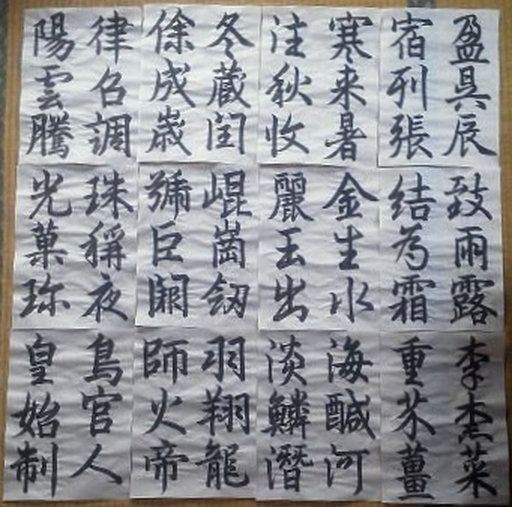 盈昃辰
宿列張
寒来暑
往秋收
冬蔵閏
餘成歳
律呂調
陽雲騰
致雨露
結為霜
金生水
麗玉出
崐崗劒
號巨闕
珠稱夜
光菓珎
李柰菜
重芥薑
海鹹河
淡鱗潛
羽翔龍
師火帝
鳥官人
皇始制